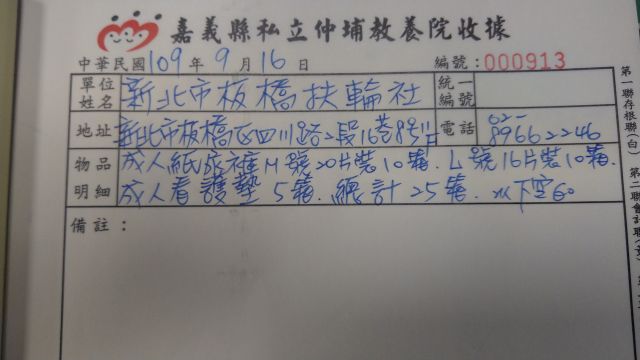 嘉義縣私立仲埔教養院收據
中華民國109年9月16日 編號:000913
單位姓名 新北市板橋扶輪社 統一編號
地址 新北市板橋區四川路2段16巷8號11F 電話 02-89662246
物品明細 成人紙尿褲M號20片裝10箱.L號16片裝10箱.
成人看護墊5箱.總計25箱.以下空白
備註:
第一聯存根聯(白)